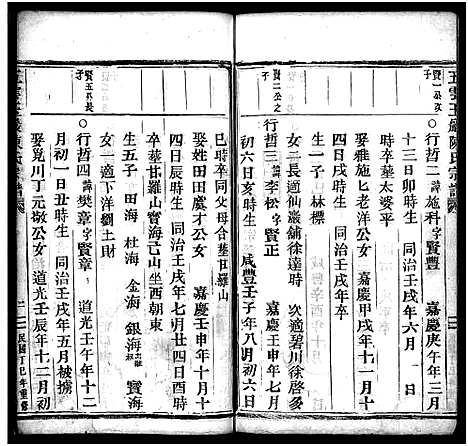 五雲玉巖陳氏宗譜
賢一公次子
行哲二 諱施科 字賢豐 嘉慶庚午年三月
十三日卯時生 同治壬戌年六月 日
時卒葬太婆平
娶雅施匕老洋公女 嘉慶甲戌年十一月十
四日戌時生 同治壬戌年卒
生一子 林標
女一長適仙巖舖徐達時 次適碧川徐啓多
賢二公之子
行哲三 諱李松 字賢正 嘉慶壬申年七月
初六日亥時生 咸豐壬子年八月初六日
巳時卒同父母合葬甘羅山
娶姓田田虞才公女 嘉慶壬申年十月十
四日辰時生 同治壬戌年七月廿四日時
卒葬甘羅山寶海己山坐西朝東
生五子 田海 杜海 金海 銀海 寶海
女一適下洋劉土財
賢五公長子
行哲一 諱樊章 字賢章 道光壬午年十二
月初一日丑時生 同治壬戌年五月被擄
娶覓川丁元敬公女 道光壬辰年十二月初
二
民國丁巳年重修